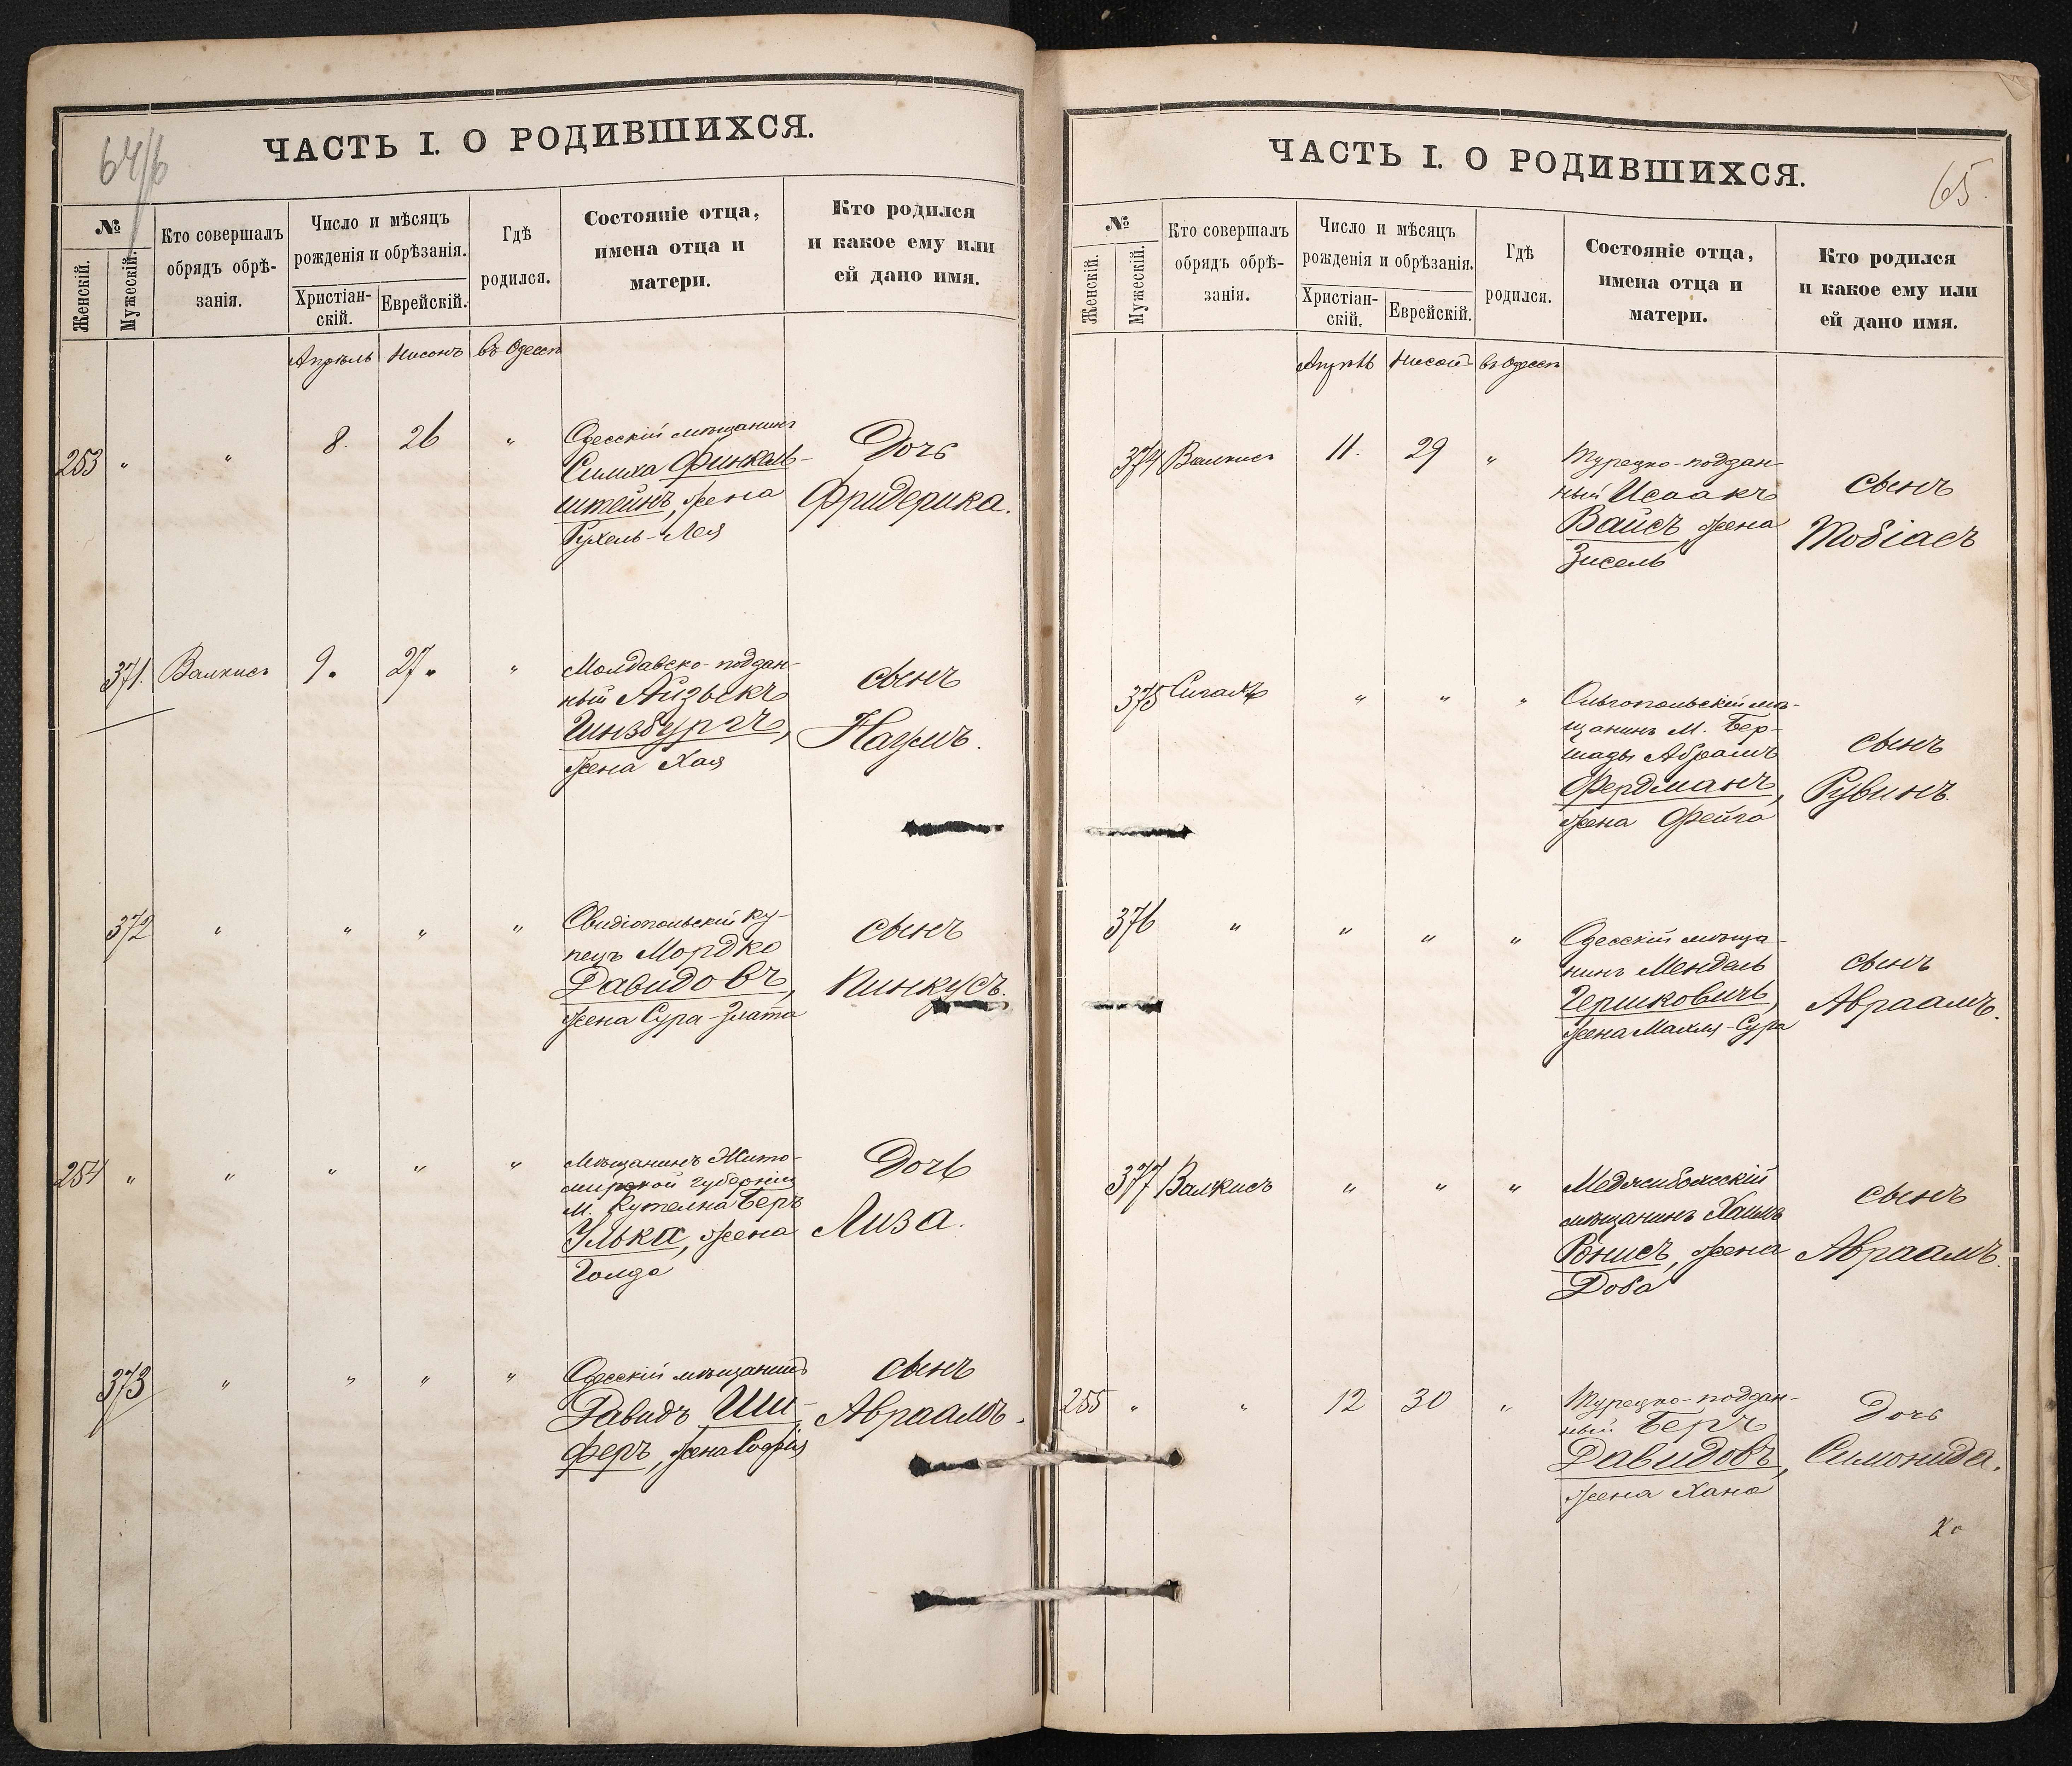 64/б
ЧАСТЬ I. О РОДИВШИХСЯ.
№
Женскій.
Мужескій.
Кто совершалъ
обрядъ обрѣ-
занія.
Число и мѣсяцъ
рожденія и обрѣзанія.
Христіан-
скій.
Еврейскій.
Гдѣ
родился.
Состояніе отца,
имена отца и
матери.
Кто родился
и какое ему или
ей дано имя.
Апрѣль Нисонъ въ Одессѣ
253 " " 8. 26 "
Одесскій мѣщанинъ
Симха Финкель-
штейнъ, жена
Рухель-Лея
Дочь
Фридерика.
371. Валкисъ 9. 27. "
Молдавско-поддан-
ный Айзыкъ
Гинзбургъ,
жена Хая
сынъ
Наумъ.
372 " " " "
Овидіопольскій ку-
пецъ Мордко
Давидовъ,
жена Сура-Злата
сынъ
Пинкусъ.
254 " " " " "
Мѣщанинъ Жито-
мирской губерніи
М. Кутелна Беръ
Улька, жена
Голда
Дочь
Лиза.
373 " " " "
Одесскій мѣщанинъ
Давидъ Ши-
феръ, жена Софія
сынъ
Авраамъ.
65.
ЧАСТЬ I. О РОДИВШИХСЯ.
№
Женскій.
Мужескій.
Кто совершалъ
обрядъ обрѣ-
занія.
Число и мѣсяцъ
рожденія и обрѣзанія.
Христіан-
скій.
Еврейскій.
Гдѣ
родился.
Состояніе отца,
имена отца и
матери.
Кто родился
и какое ему или
ей дано имя.
Апрѣль Нисон въ Одессѣ
374 Валкисъ 11. 29 "
Турецко-поддан-
ный Исаакъ
Вайсъ, жена
Зисель
сынъ
Тобіасъ
375 Сигалъ " " "
Ольгопольскій мѣ-
щанинъ М. Бер-
шады Абрамъ
Фердманъ,
жена Фейга
сынъ
Рувинъ.
376 " " " "
Одесскій мѣща-
нинъ Мендель
Гершковичъ,
жена Махля-Сура
сынъ
Авраамъ.
377 Валкисъ " " "
Меджибожскій
мѣщанинъ Хаимъ
Ронисъ, жена
Доба
сынъ
Авраамъ.
255 " " 12 30 "
Турецко-поддан-
ный Беръ
Давидовъ,
жена Хана
Дочь
Симонида.